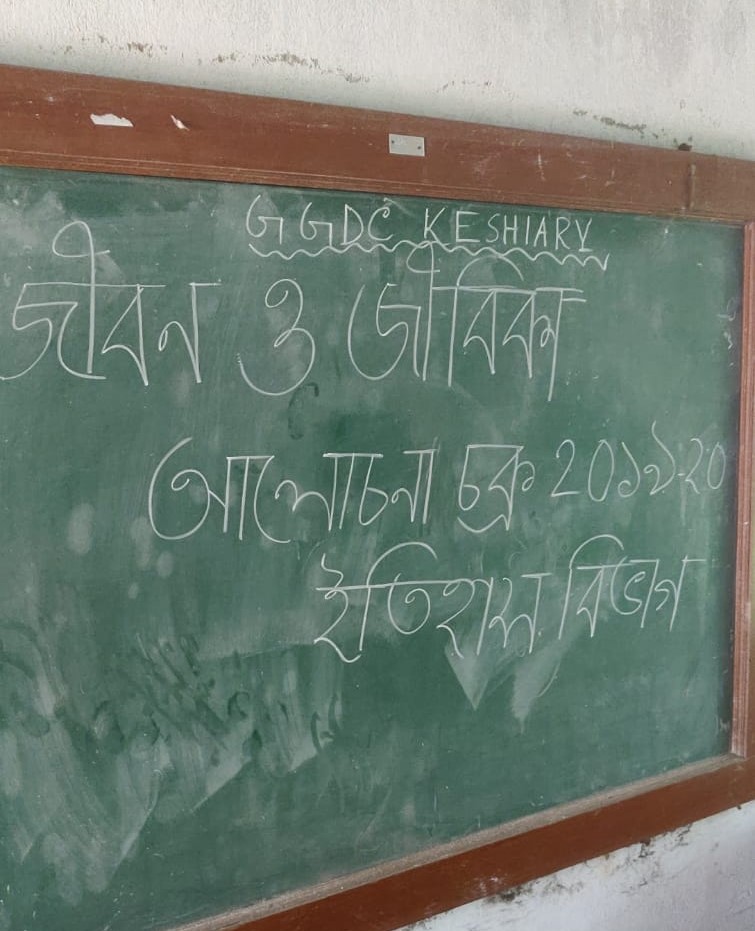 GGDC KESHIARY
জীবন ও জীবিকা
আলোচনা চক্র ২০১৯-২০
ইতিহাস বিভাগ